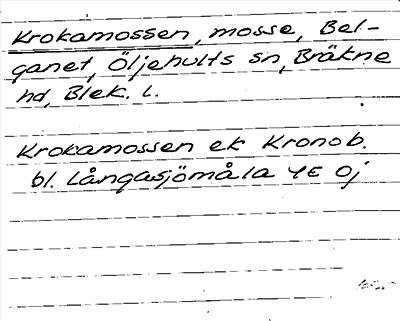 Krokamossen, mosse, Bel-
ganet, Öljehults sn, Bräkne
hd, Blek. l.
Krokamossen ek Kronob.
bl. Långasjömåla 4E Oj